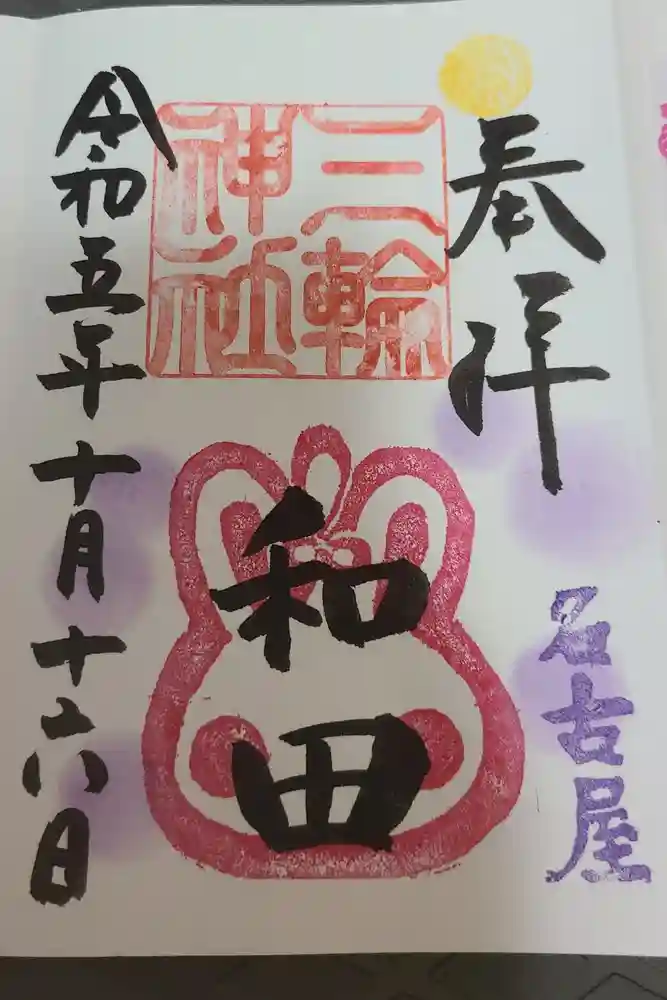 奉拝
名古屋
三輪
神社
和田
令和五年十月十六日